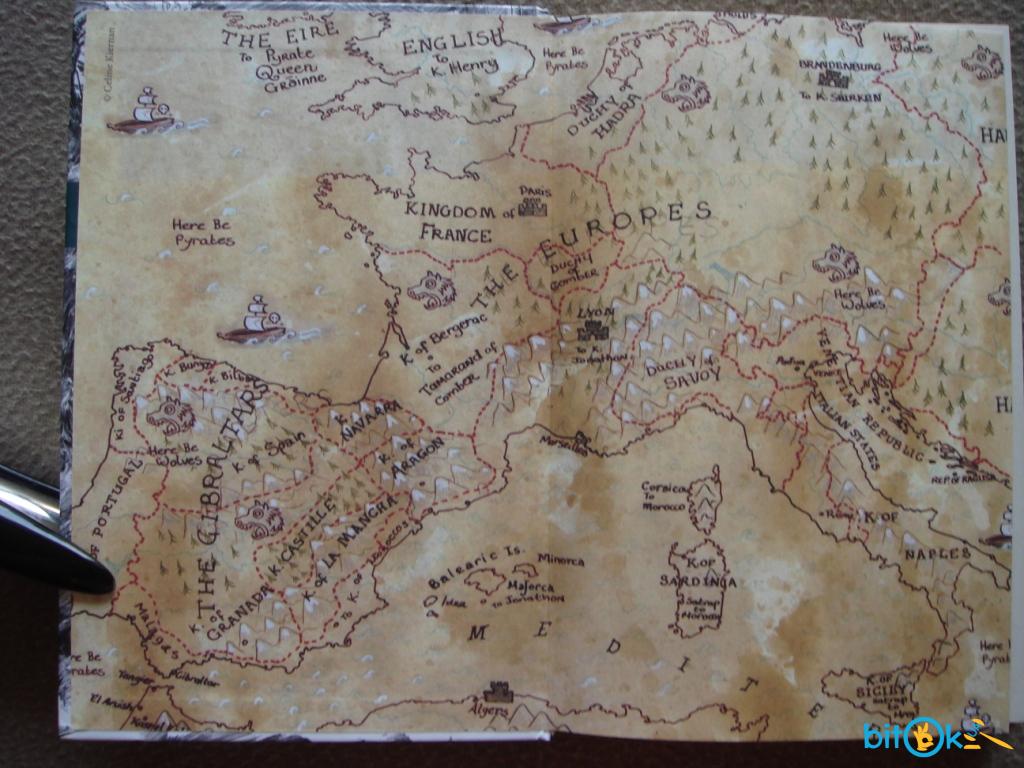 © Celine Kiernan
THE EIRE
To Pyrate
Queen
Grainne
ENGLISH
To
K. Henry
Here Be
Pyrates
Here Be
Wolves
BRANDENBURG
To K.
DUCHY of
HADRA
HA
Here Be
Pyrates
KINGDOM of
FRANCE
PARIS
THE EUROPES
Duchy
of
Comber
Here Be
Wolves
K of Bergerac
To
Tamarand of
Comber
LYON
To K.
Jonathon
DUCHY of
SAVOY
Padua
VENICE
VENETIAN REPUBLIC
ITALIAN STATES
REP. OF RAGUSA
H
K of
Santiago
K. Burgos
K. Bilbao
Here Be
Wolves
THE GIBRALTARS
K of Spain
K. of
NAVARRA
K. of
ARAGON
K. CASTILLE
K of LA MANCHA
K. of
GRANADA
OF PORTUGAL
Malagas
Corsica
To
Morocco
K. OF
SARDINIA
Rome
K. OF
NAPLES
Balearic Is.
Minorca
Majorca
To Jonathon
M E D I T E
re Be
rates
Tangier
Gibraltar
Algers
K. OF
SICILY
Here
Pyrat
bitOk